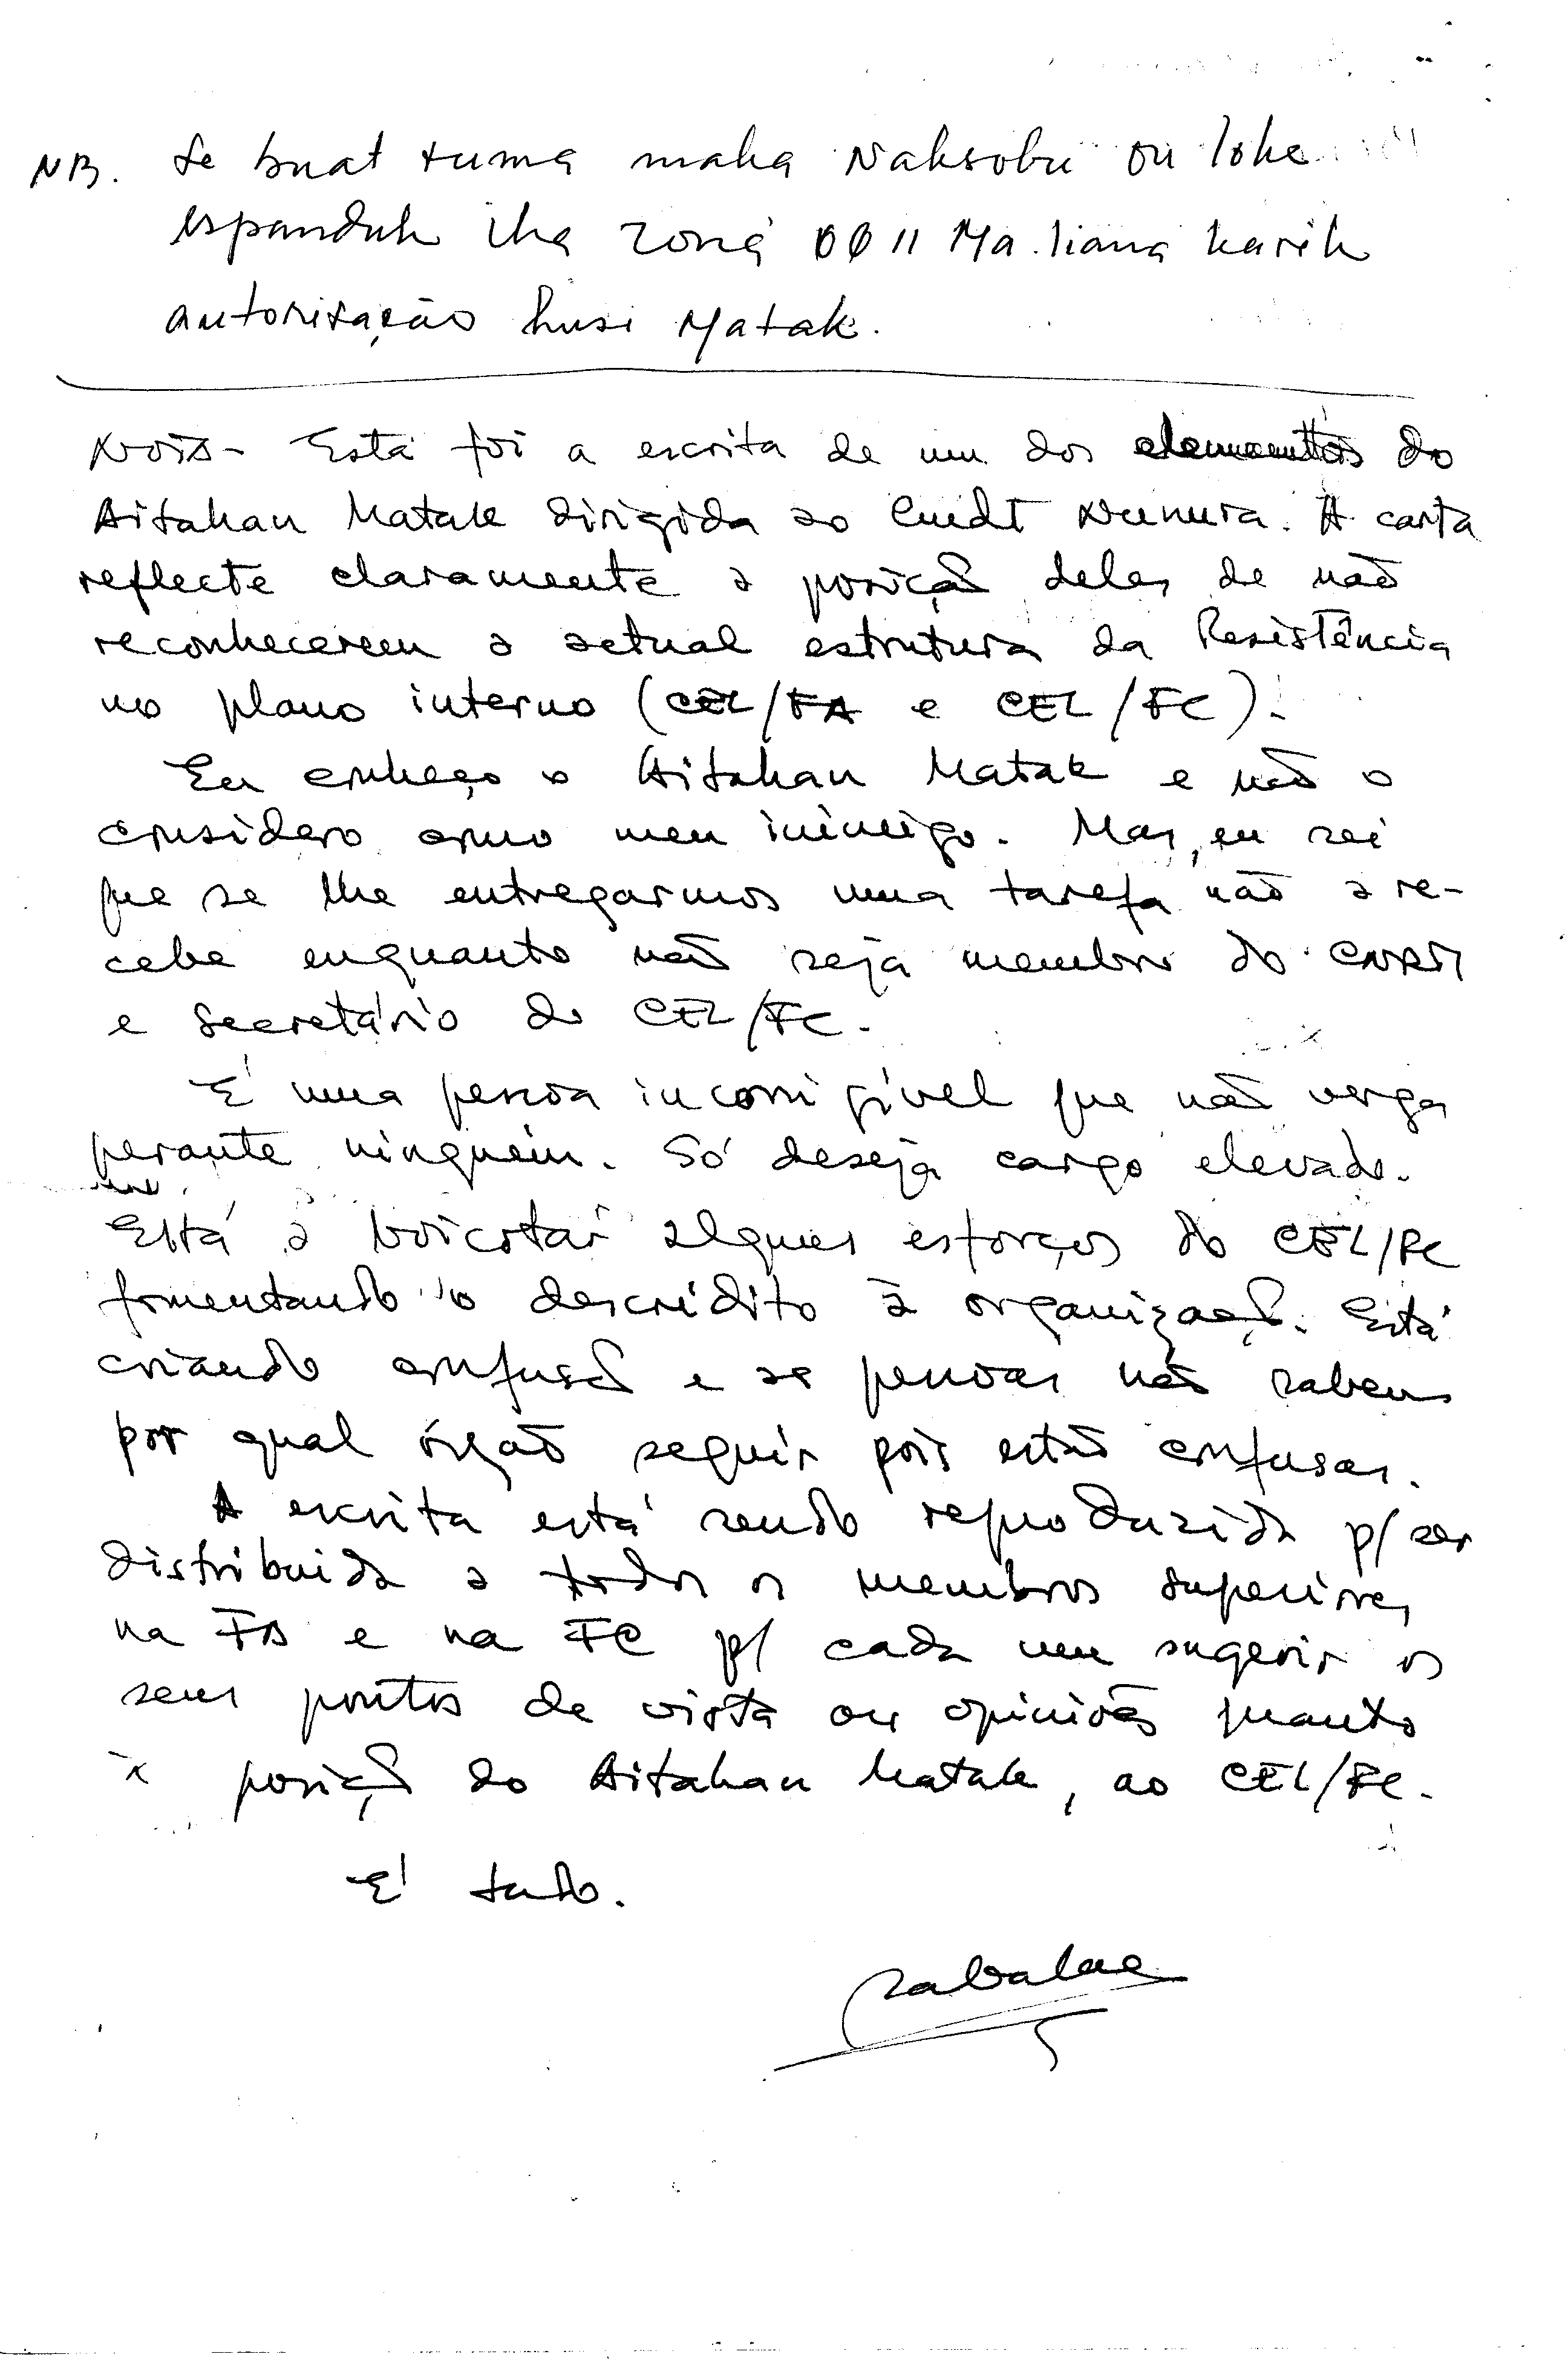 NB. Se buat ruma maka Naksobu ou loke
espanduk iha zona 0011 Maliana karik
autorisação husi Matak.
Nota - Esta foi a escrita de um dos elementos do
Aitahan Matak dirigida ao Cmdt Nunura. A carta
reflecte claramente a posição deles de não
reconhecerem a actual estrutura da Resistência
no plano interno (CEL/FA e CEL/FC).
Eu conheço o Aitahan Matak e não o
considero como meu inimigo. Mas, eu sei
que se lhe entregarmos uma tarefa não a re-
cebe enquanto não seja membro do CNRM
e secretário do CEL/FC.
É uma pessoa incorrigível que não verga
perante ninguém. Só deseja cargo elevado.
Está a boicotar alguns esforços do CEL/FC
fomentando o descrédito à organização. Está
criando confusão e as pessoas não sabem
por qual órgão seguir pois estão confusas.
A escrita está sendo reproduzida p/ ser
distribuida a todos os membros superiores
na FA e na FC p/ cada um sugerir os
seus pontos de vista ou opiniões quanto
à posição do Aitahan Matak, ao CEL/FC.
É tudo.
Sabalae